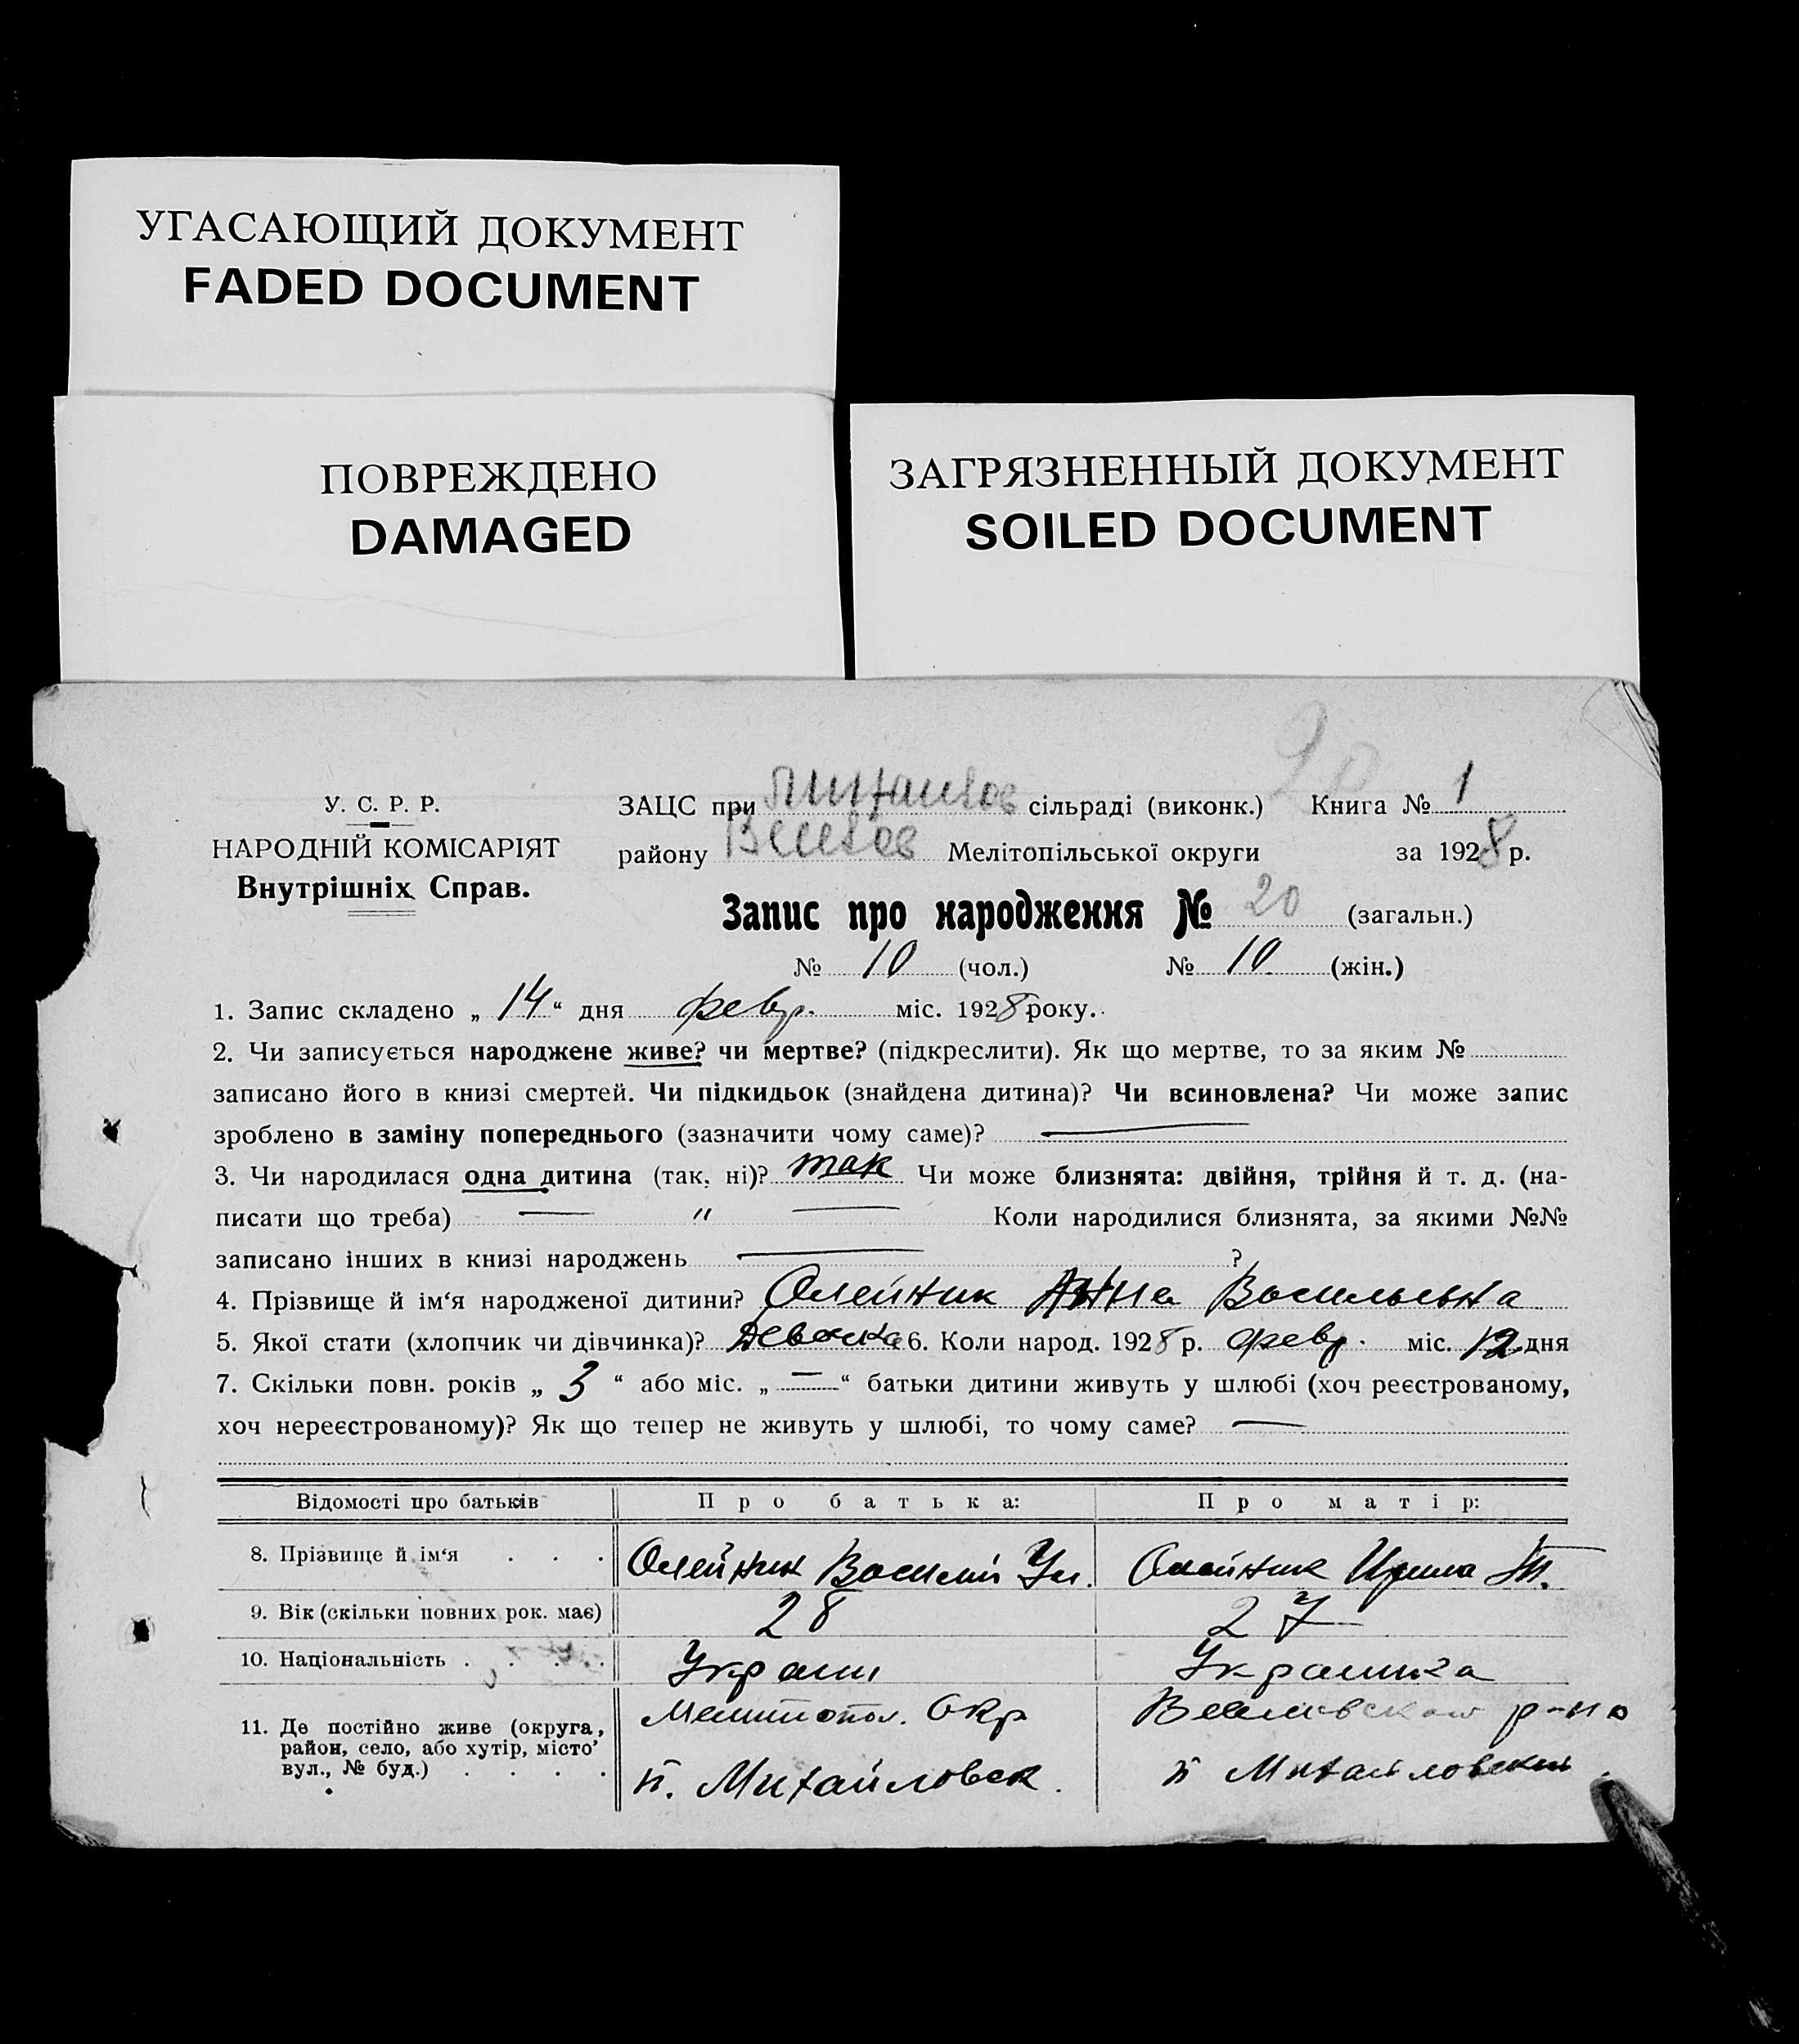 УГАСАЮЩИЙ ДОКУМЕНТ
FADED DOCUMENT
ПОВРЕЖДЕНО
DAMAGED
ЗАГРЯЗНЕННЫЙ ДОКУМЕНТ
SOILED DOCUMENT
20
У. С. Р. Р.
НАРОДНІЙ КОМІСАРІЯТ
Внутрішніх Справ.
ЗАЦС при Михайлов сільраді (виконк.) Книга № 1
району Мелітопільської округи за 1928 р.
Запис про народження № 20 (загальн.)
№ 10 (чол.) № 10 (жін.)
1. Запис складено „ 14 “ дня февр. міс. 1928 року.
2. Чи записується народжене живе? чи мертве? (підкреслити). Як що мертве, то за яким №
записано його в книзі смертей. Чи підкидьок (знайдена дитина)? Чи всиновлена? Чи може запис
зроблено в заміну попереднього (зазначити чому саме)? —
3. Чи народилася одна дитина (так, ні)? так Чи може близнята: двійня, трійня й т. д. (на-
писати що треба) — " — Коли народилися близнята, за якими №№
записано інших в книзі народжень — ?
4. Прізвище й ім‘я народженої дитини? Олейник Анна Васильевна
5. Якої стати (хлопчик чи дівчинка)? Девочка 6. Коли народ. 1928 р. февр. міс. 12 дня
7. Скільки повн. років „ 3 “ або міс. „ — “ батьки дитини живуть у шлюбі (хоч реєстрованому,
хоч нереєстрованому)? Як що тепер не живуть у шлюбі, то чому саме? —
Відомості про батьків Про батька: Про матір:
8. Прізвище й ім‘я . . . Олейник Василий Ул. Олейник Ирина
9. Вік (скільки повних рок. має) 28 27
10. Національність . . . . Украин Украинка
11. Де постійно живе (округа,
район, село, або хутір, місто,
вул., № буд.) . . . .
Мелитопол. Окр
п. Михайловск.
р-на
п Михайловский